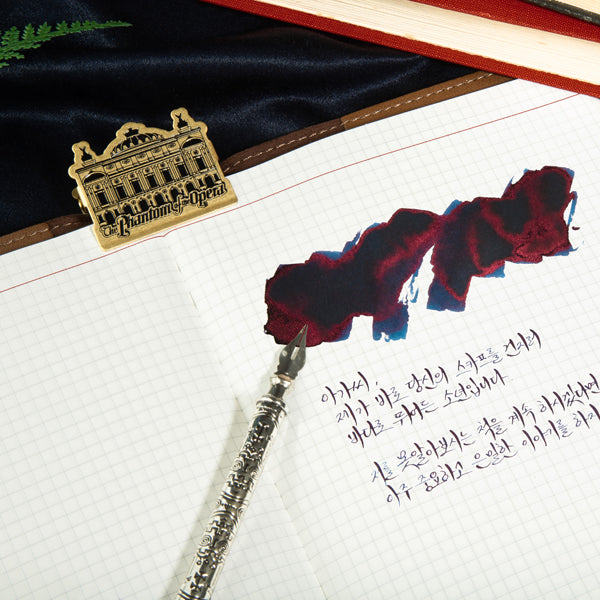 The Phantom of the Opera
아가씨,
제가 바로 당신의 스카프를 건지러
바다로 뛰어든 소년입니다
나를 못알아보시는 척을 계속 하시겠다면
아주 중요하고 은밀한 이야기를 하지